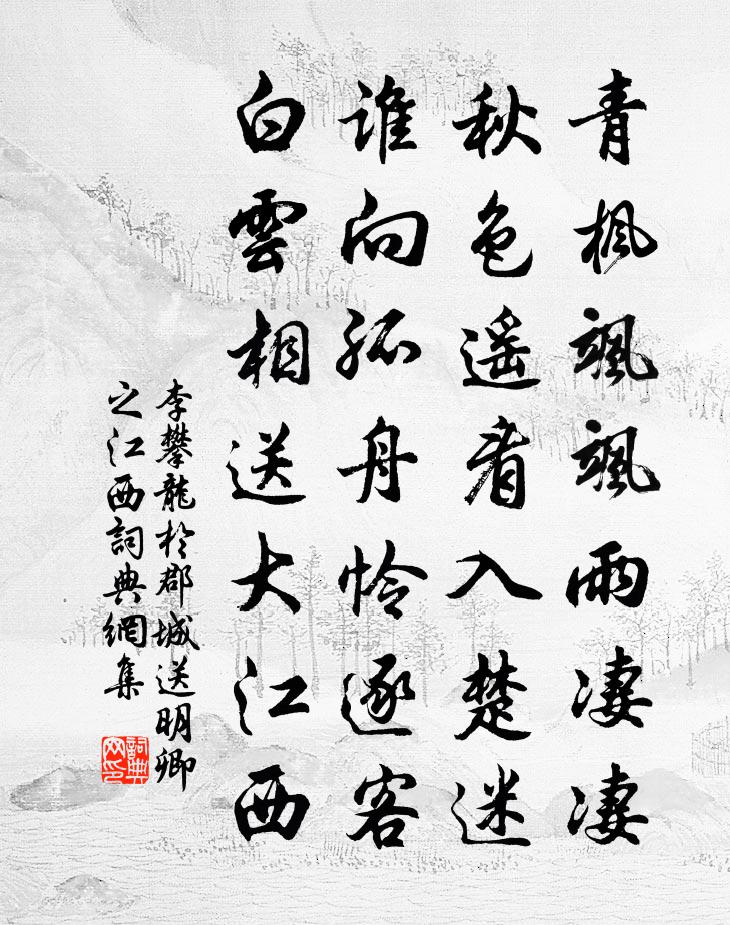 青楓颯颯雨淒淒
秋色遥看入楚迷
誰向孤舟怜逐客
白雲相送大江西
李攀龍於郡城送明卿
之江西詞典網集
詞典
网印